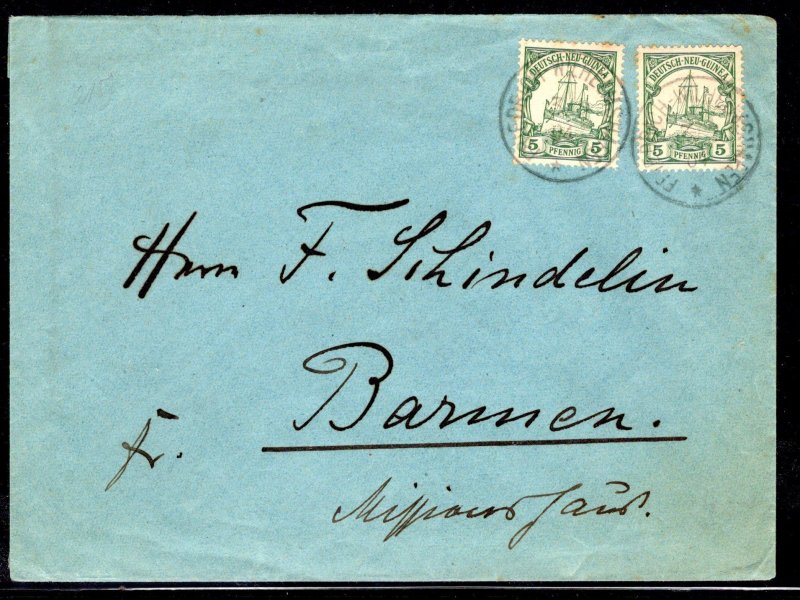 DEUTSCH-NEU-GUINEA
5 PFENNIG 5
DEUTSCH-NEU-GUINEA
5 PFENNIG 5
Herrn F. Schindelin
Barmen.
Fr.
Missionshaus.